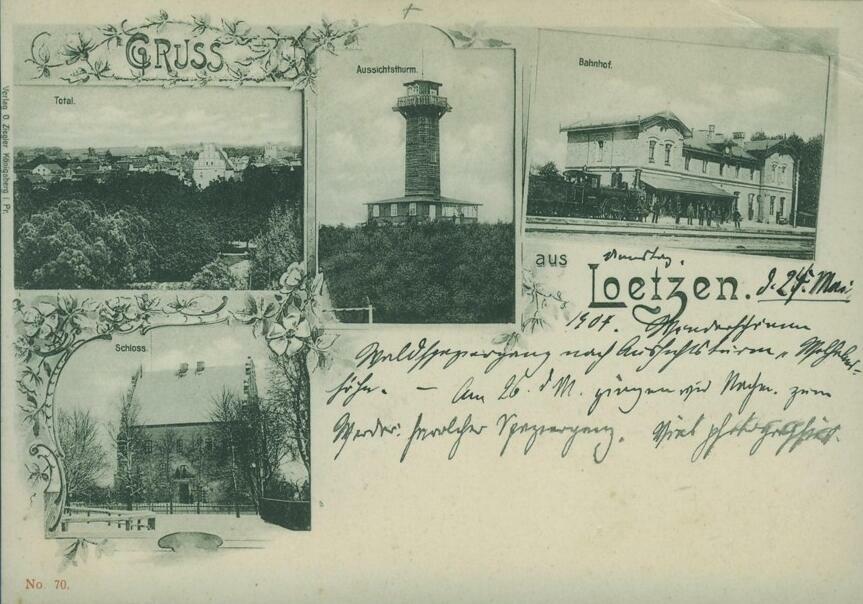 GRUSS
Total.
Aussichtsthurm.
Bahnhof.
Verlag O. Ziegler Königsberg i. Pr.
aus
Loetzen. d. 24. Mai
1907. Wunderschöner
Waldspaziergang nach Aussichtsturm
höhe. — Am 26. d. M. gingen wir Nachm. zum
Werder: herrlicher Spaziergang. Viel photographiert.
Schloss.
No. 70.